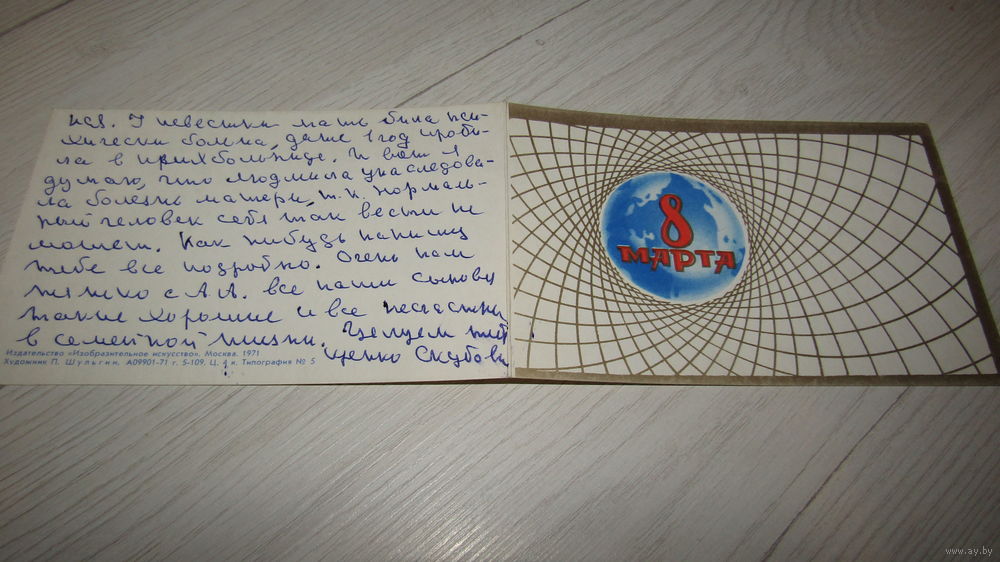 У невестки мать была пси-
хически больна, даже 1 год проби-
ла в психбольнице. И вот я
думаю, что Людмила унаследова-
ла болезнь матери, т.к. нормаль-
ный человек себя так вести не
может. Как нибудь напишу
тебе все подробно. Очень нам
тяжко с А.А. все наши сыновья
такие хорошие и все несчастны
в семейной жизни. Целуем тебя
Скубовы
Издательство «Изобразительное искусство». Москва. 1971
Художник П. Шульгин. А09901-71 г. 5-109. Ц. 4 к. Типография № 5
8
МАРТА
www.ay.by